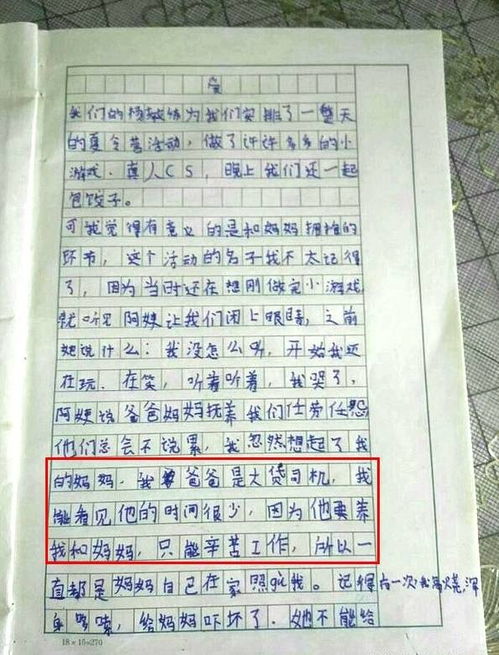 爱
我们的杨教练为我们安排了一整天
的夏令营活动，做了许许多多的小
游戏、真人CS，晚上我们还一起
包饺子。
可我觉得有意义的是和妈妈拥抱的
环节，这个活动的名子我不太记得
了，因为当时还在想刚做完小游戏
就听见阿姨让我们闭上眼睛，之前
她说什么：我没怎么听，开始我还
在玩、在笑，听着听着，我哭了，
阿姨说爸爸妈妈抚养我们任劳任怨
他们总会不说累，我忽然想起了我
的妈妈。我爸爸是大货司机，我
能看见他的时间很少，因为他要养
我和妈妈，只能辛苦工作，所以一
直都是妈妈自己在家照顾我。记得有一次我高烧，浑
身哆嗦，给妈妈吓坏了。她不能给
18×15=270